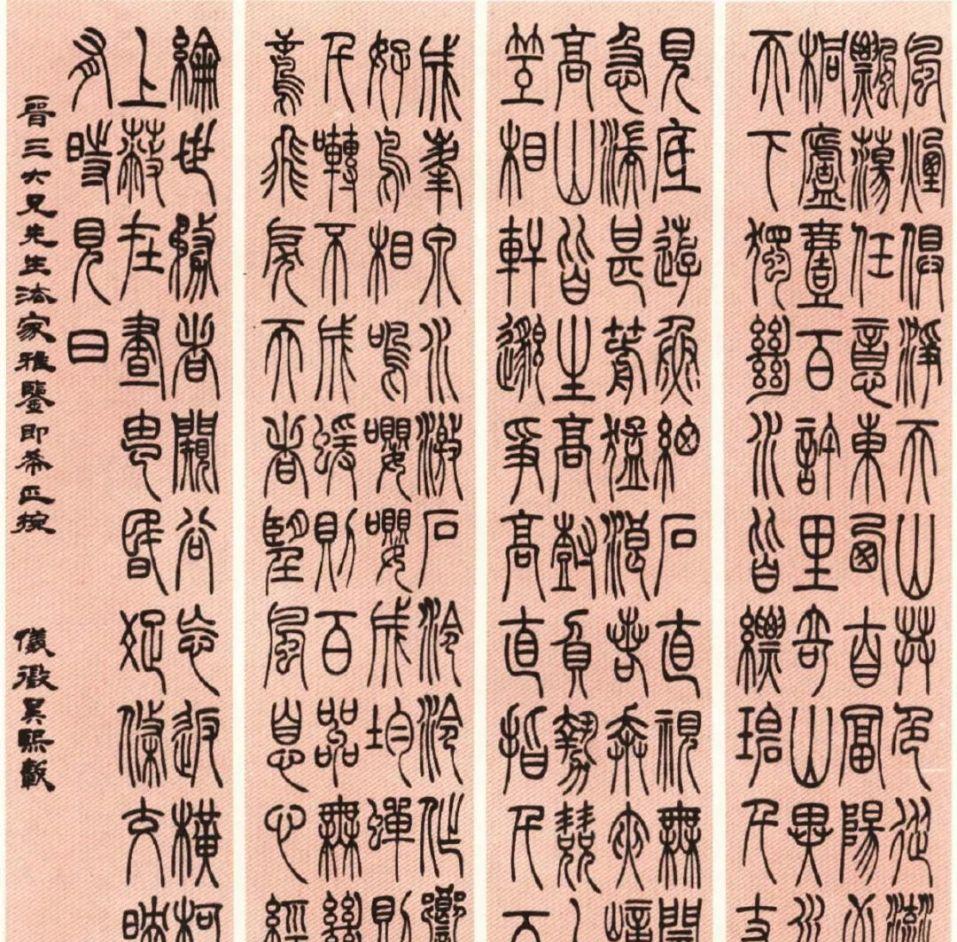 風煙俱淨天山共色從流
飄蕩任意東西自富陽至
桐廬壹百許里奇山異水
天下獨絕水皆縹碧千丈
見底遊魚細石直視無
急湍甚箭猛浪若奔夾嶂
高山皆生高樹負勢競上
互相軒邈爭高直指千百
成峯泉水激石泠泠作響
好鳥相鳴嚶嚶成均蟬則
千囀不成蝯則百㗊無絕
鳶飛戾天者望風息心經
綸世務者闚谷忘返橫柯
上蔽在晝猶昏疏條交映
有時見日
晉三六兄先生法家雅鑒即希正捥 儀徵吳熙載